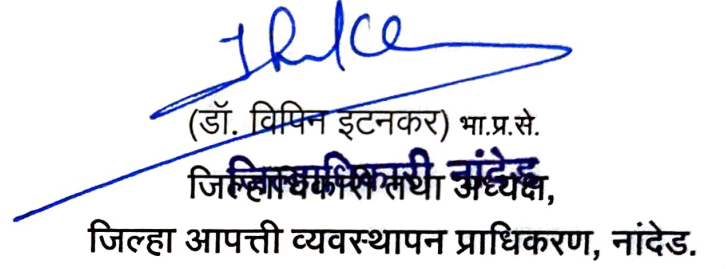 (डॉ. विपिन इटनकर) भा.प्र.से.
जिल्हाधिकारी नांदेड
जिल्हाधिकारी तथा अध्यक्ष,
जिल्हा आपत्ती व्यवस्थापन प्राधिकरण, नांदेड.